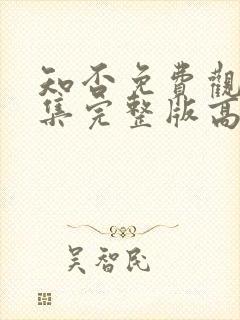 知否免費觀
集完整版高
吳智民